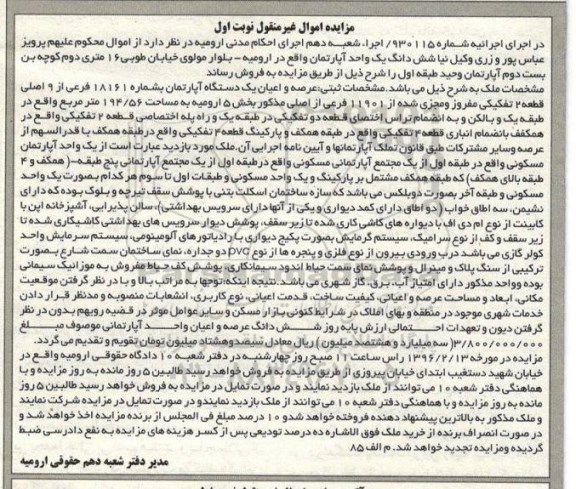 مزایده اموال غیرمنقول نوبت اول
در اجرای اجرائیه شماره ۹۳۰۱۱۵/ اجرا، شعبه دهم اجرای احکام مدنی ارومیه در نظر دارد از اموال محکوم علیهم پرویز
عباس پور و زری وکیل نیا شش دانگ یک واحد آپارتمان واقع در ارومیه - بلوار مولوی خیابان طوبی ۱۶ متری دوم کوچه بن
بست دوم آپارتمان وحید طبقه اول را شرح ذیل از طریق مزایده به فروش رساند
مشخصات ملک به شرح ذیل می باشد.مشخصات ثبتی:عرصه و اعیان یک دستگاه آپارتمان بشماره ۱۸۱۶۱ فرعی از ۹ اصلی
قطعه ۲ تفکیکی مفروز ومجزی شده از ۱۱۹۰۱ فرعی از اصلی مذکور بخش ۵ ارومیه به مساحت ۱۹۴/۵۶ متر مربع واقع در
طبقه یک و بالکن و به انضمام تراس اختصای قطعه دو تفکیکی در طبقه یک و راه پله اختصاصی قطعه ۲ تفکیکی واقع در
همکفف بانضمام انباری قطعه ۴ تفکیکی واقع در طبقه همکف و پارکینگ قطعه ۴ تفکیکی واقع در طبقه همکف با قدرالسهم از
عرصه وسایر مشترکات طبق قانون تملک آپارتمانها و آیین نامه اجرایی آن.ملک مورد بازدید عبارت است از یک واحد آپارتمان
مسکونی واقع در طبقه اول از یک مجتمع آپارتمانی مسکونی واقع در طبقه اول از یک مجتمع آپارتمانی پنج طبقه-( همکف و ۴
طبقه بالای همکف) که طبقه همکف مشتمل بر پارکینگ و یک واحد مسکونی و طبقات اول تا سوم هر کدام بصورت یک واحد
مسکونی و طبقه آخر بصورت دوبلکس می باشد که سازه ساختمان اسکلت بتنی با پوشش سقف تیرچه و بلوک بوده که دارای
نشیمن، سه اطاق خواب ( دو اطاق دارای کمد دیواری و یکی از آنها دارای سرویس بهداشتی) ، سالن پذیرایی، آشپزخانه اپن با
کابینت از نوع ام دی اف با دیواره های کاشی کاری شده تا زیر سقف، پوشش دیوار سرویس های بهداشتی کاشیکاری شده تا
زیر سقف و کف از نوع سرامیک، سیستم گرمایش بصورت پکیج دیواری با رادیاتور های آلومینومی، سیستم سرمایش واحد
کولر گازی می باشد درب ورودی بیرون از نوع فلزی و پنجره ها از نوع pvc دو جداره، نمای ساختمان سمت شارع بصورت
ترکیبی از سنگ پلاک و مینرال و پوشش نمای سمت حیاط اندود سیمانکاری، پوشش کف حیاط مفروش به موزائیک سیمانی
بوده و واحد مذکور دارای امتیاز آب، برق، گاز شهری می باشد. نتیجه اینکه:توجها به مراتب بالا و با در نظر گرفتن موقعیت
مکانی، ابعاد و مساحت عرصه و اعیانی، کیفیت ساخت، قدمت اعیانی، نوع کاربری، انشعابات منصوبه و مدنظر قرار دادن
خدمات شهری موجود در منطقه و بهای املاک در شرایط کنونی بازار مسکن و سایر عوامل موثر در قضیه رویهم بدون در نظر
گرفتن دیون و تعهدات احتمالی ارزش پایه روز شش دانگ عرصه و اعیان واحد آپارتمانی موصوف مبلغ
۳/۸۰۰/۰۰۰/۰۰۰(سه میلیارد و هشتصد میلیون) ریال معادل سیصد وهشتاد میلیون تومان تقویم و تقدیم می گردد.
مزایده در مورخه ۱۳۹۶/۲/۱۳ راس ساعت ۱۱ صبح روز چهارشنبه در دفتر شعبه ۱۰ دادگاه حقوقی ارومیه واقع در
خیابان شهید دستغیب ابتدای خیابان پیروزی از طریق مزایده به فروش خواهد رسید طالبین ۵ روز مانده به روز مزایده و با
هماهنگی دفتر شعبه ۱۰ می توانند از ملک بازدید نمایند و در صورت تمایل در مزایده به فروش خواهد رسید طالبین ۵ روز
مانده به روز مزایده و با هماهنگی دفتر شعبه ۱۰ می توانند از ملک بازدید نمایندو در صورت تمایل در مزایده شرکت نمایند
و ملک مذکور به بالاترین پیشنهاد دهنده فروخته خواهد شدو ۱۰ درصد مبلغ فی المجلس از برنده مزایده اخذ خواهد شد و
در صورت انصراف برنده از خرید ملک فوق الاشاره ده درصد تودیعی پس از کسر هزینه های مزایده به نفع دادرسی ضبط
گردیده ومزایده تجدید خواهد شد. م الف ۸۵
مدیر دفتر شعبه دهم حقوقی ارومیه